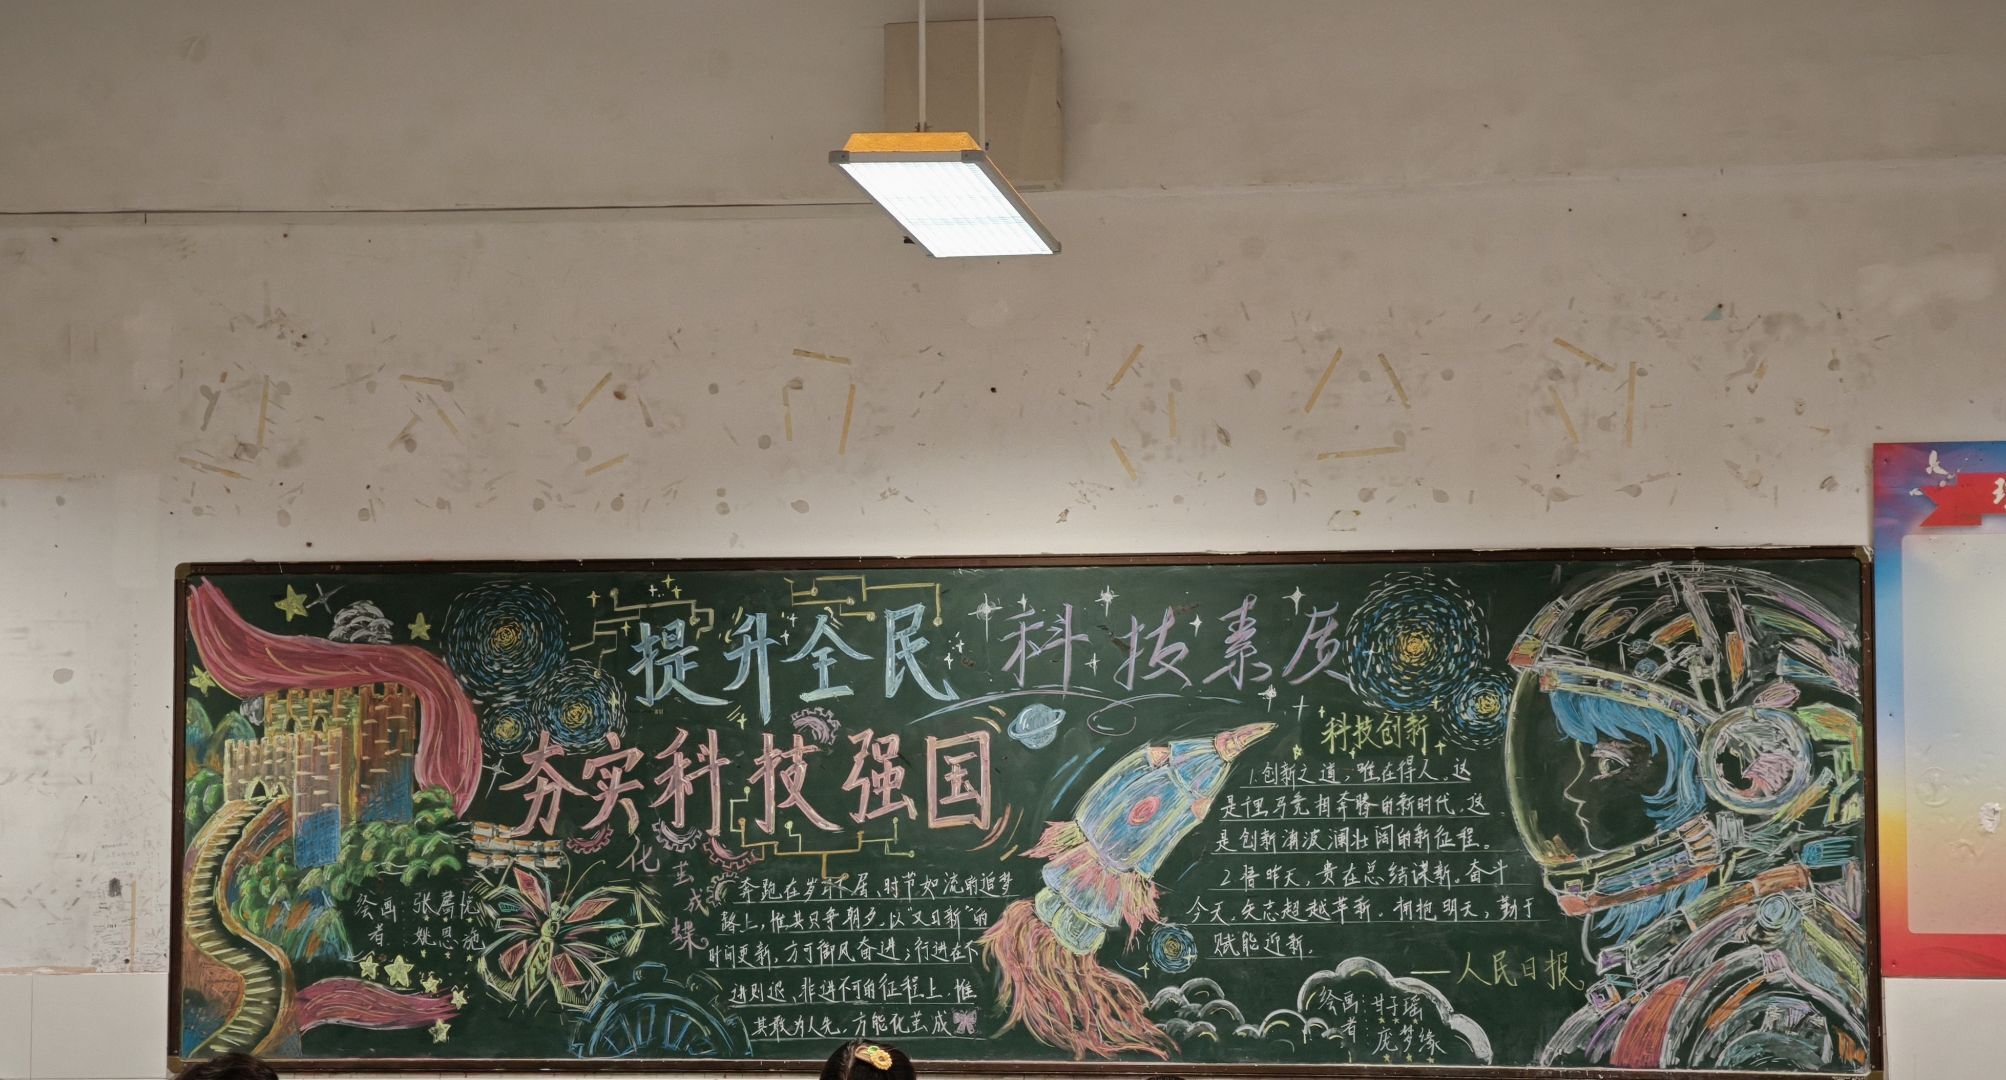 提升全民科技素质
夯实科技强国
化茧成蝶
奔跑在岁月不居、时节如流的追梦
路上，惟其只争朝夕，以“又日新”的
时间更新，方可御风奋进；行进在不
进则退、非进不可的征程上，惟
其敢为人先，方能化茧成
绘画者：张
姚恩施
科技创新
1.创新之道，唯在得人。这
是千里马竞相奔腾的新时代，这
是创新涌波澜壮阔的新征程。
2.惜昨天，贵在总结谋新。奋斗
今天，矢志超越革新。拥抱明天，勤于
赋能迎新。
——人民日报
绘画者：甘子瑶
庞梦缘